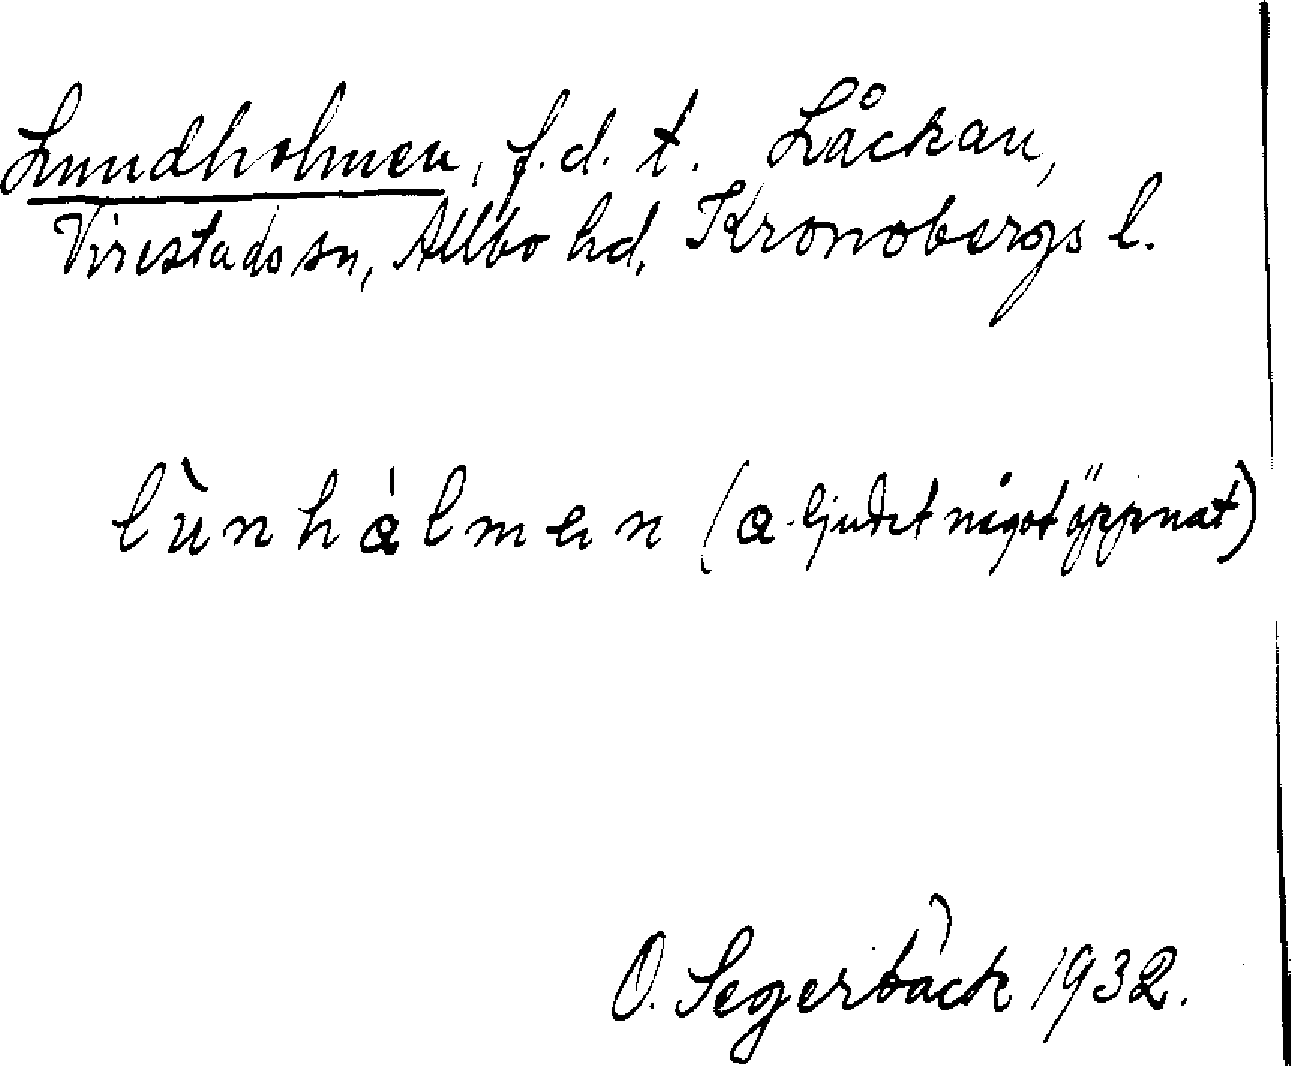 Lundholmen, f.d. t. Låckau,
Virestads sn, Allbo hd, Kronobergs l.
lùnhålmen (a-ljudet något öppnat)
O. Segerbäck 1932.